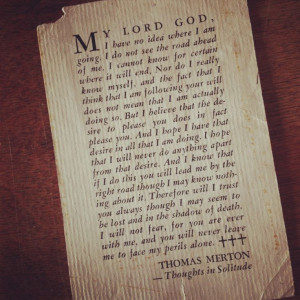 MY LORD GOD,
I have no idea where I am
going. I do not see the road ahead
of me. I cannot know for certain
where it will end. Nor do I really
know myself, and the fact that I
think that I am following your will
does not mean that I am actually
doing so. But I believe that the de-
sire to please you does in fact
please you. And I hope I have that
desire in all that I am doing. I hope
that I will never do anything apart
from that desire. And I know that
if I do this you will lead me by the
right road though I may know noth-
ing about it. Therefore will I trust
you always though I may seem to
be lost and in the shadow of death.
I will not fear, for you are ever
with me, and you will never leave
me to face my perils alone. †††
THOMAS MERTON
— Thoughts in Solitude